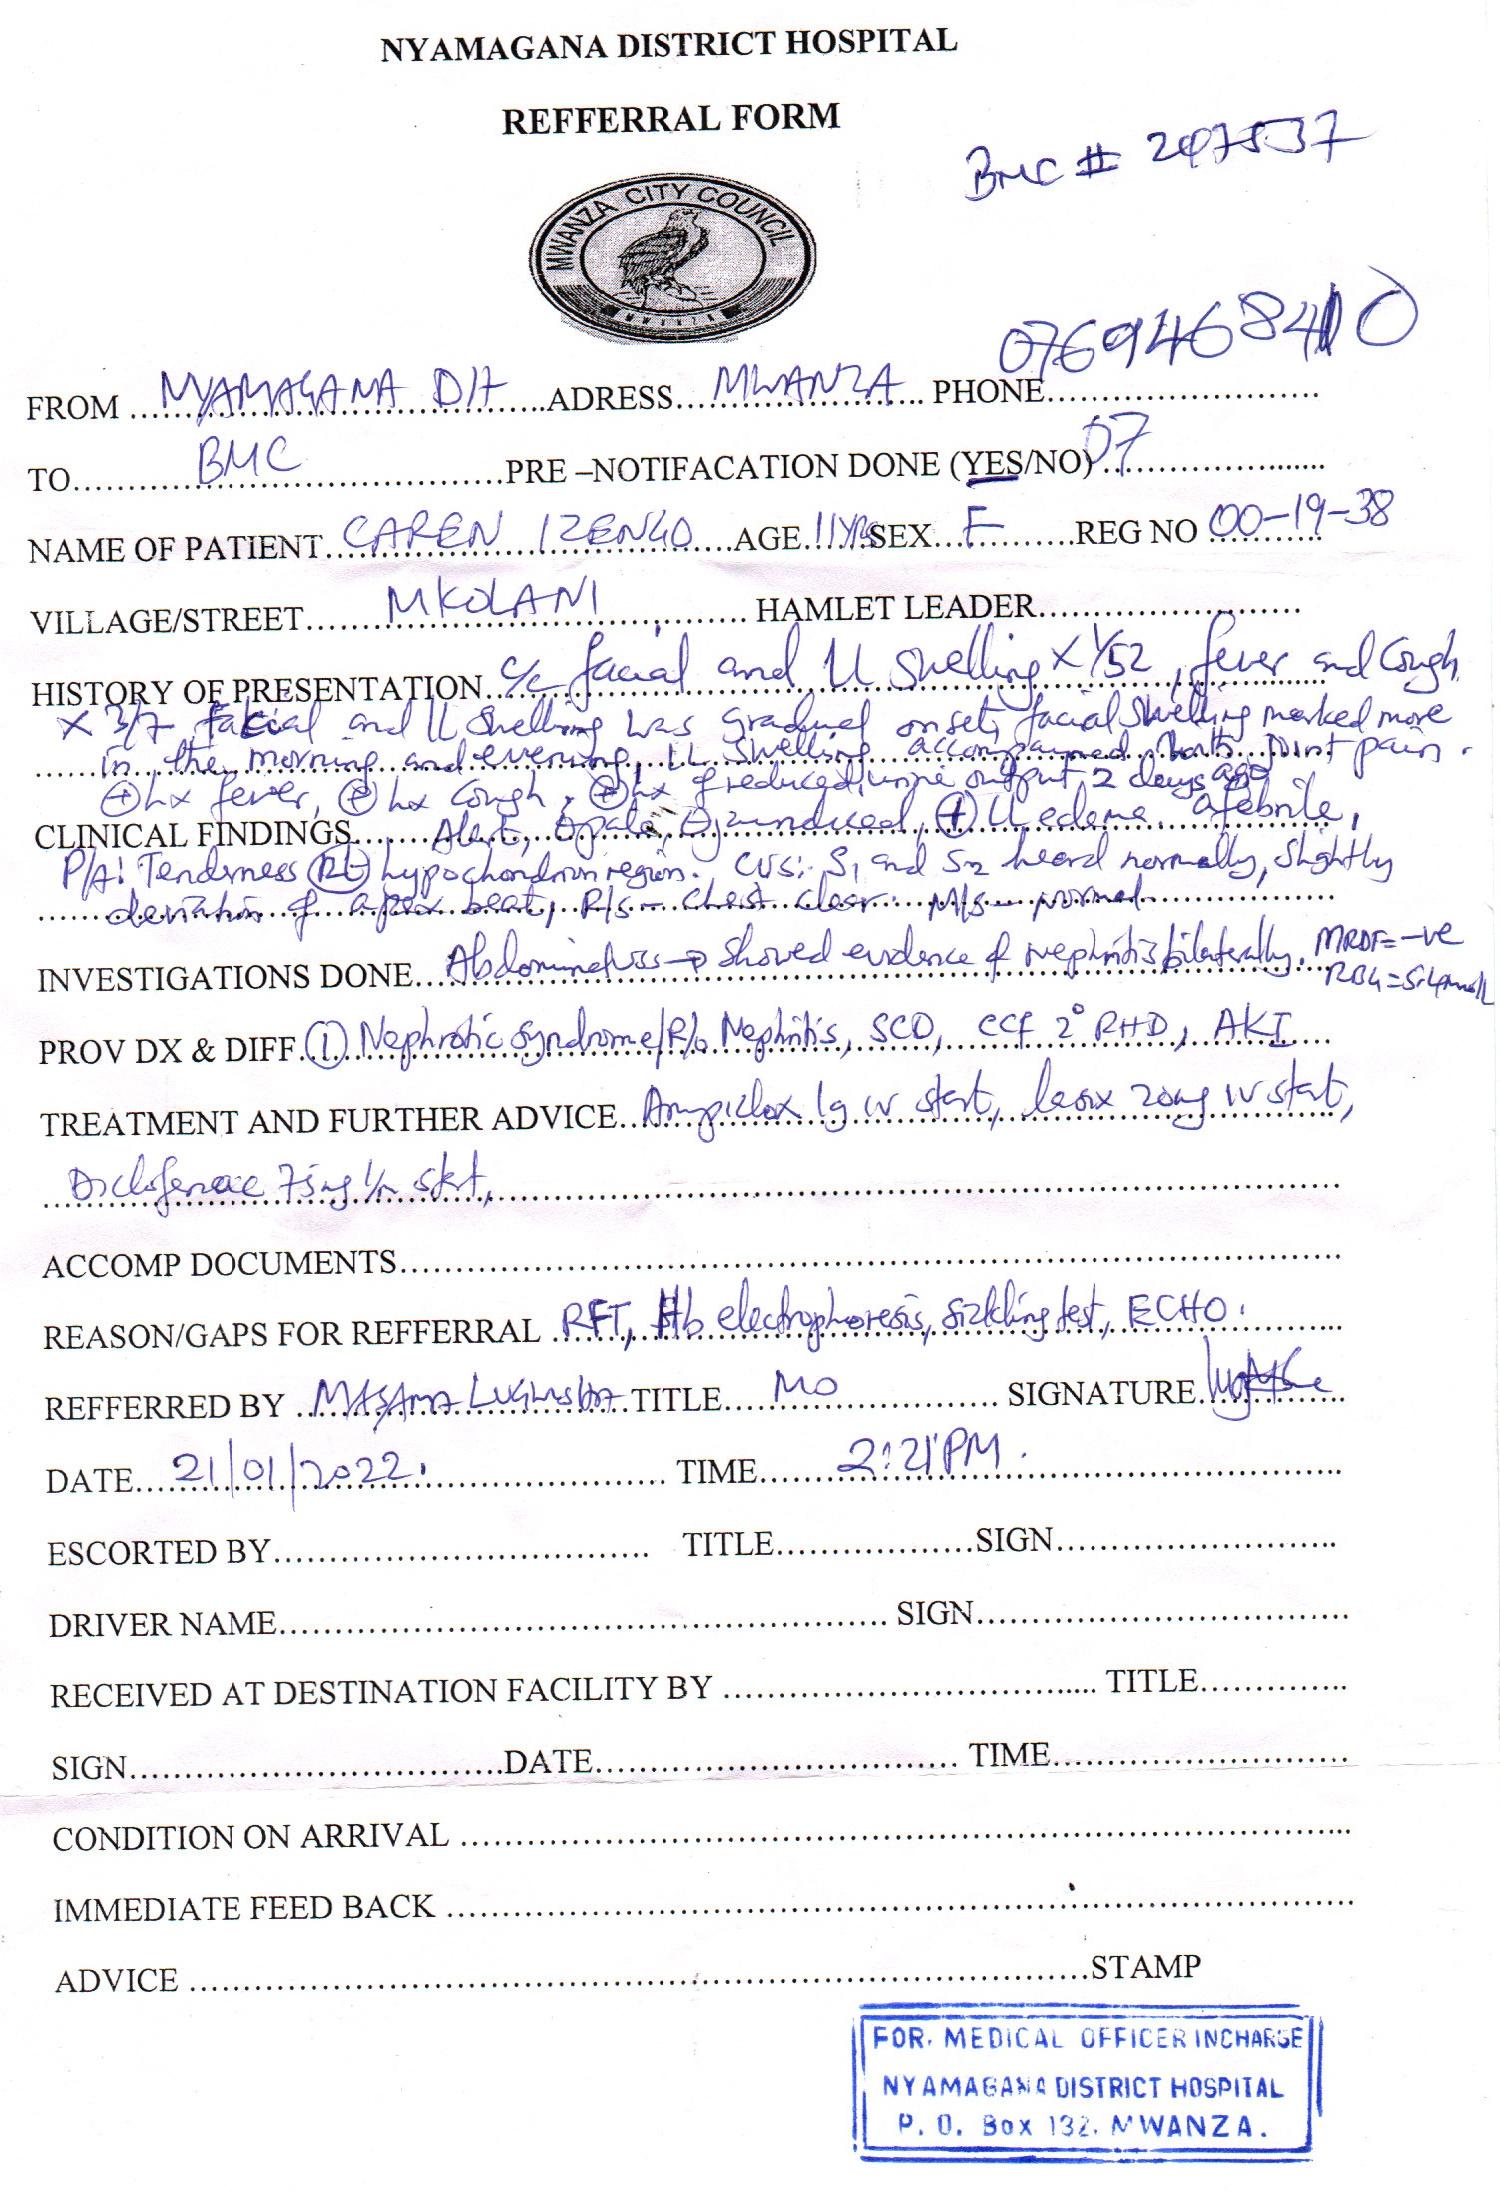 NYAMAGANA DISTRICT HOSPITAL
REFFERRAL FORM
BMC # 247537
MWANZA CITY COUNCIL
MWANZA
0769468410
FROM NYAMAGANA D/H ADRESS MWANZA PHONE
TO BMC PRE –NOTIFACATION DONE (YES/NO) 07
NAME OF PATIENT CAREN IZENGO AGE 11YRS SEX F REG NO 00-19-38
VILLAGE/STREET MKOLANI HAMLET LEADER
HISTORY OF PRESENTATION c/c facial and LL swelling x 1/52, fever and Cough
x 3/7 facial and LL swelling was gradual onset, facial swelling marked more
in the morning and evening, LL swelling accompained with joint pain.
⊕hx fever, ⊕hx cough, ⊕hx of reduced urine output 2 days ago
CLINICAL FINDINGS Alert, pale, jaundiced, ⊕ LL edema afebrile,
P/A: Tenderness Rt hypochondrion region. CVS: S1 and S2 heard normally, slightly
deviation of apex beat, R/S - chest clear. M/S - normal
INVESTIGATIONS DONE Abdominal uss → showed evidence of nephritis bilaterally. MRDT= -ve
RBG = 5.4mmol/L
PROV DX & DIFF ① Nephrotic syndrome/R/o Nephritis, SCD, CCF 2° RHD, AKI
TREATMENT AND FURTHER ADVICE Ampiclox 1g IV start, lasix 20mg IV start,
Diclofenac 75mg I/m start,
ACCOMP DOCUMENTS
REASON/GAPS FOR REFFERRAL RFT, Hb electrophoresis, sickling test, ECHO.
REFFERRED BY TITLE MO SIGNATURE
DATE 21/01/2022. TIME 2:21PM.
ESCORTED BY TITLE SIGN
DRIVER NAME SIGN
RECEIVED AT DESTINATION FACILITY BY TITLE
SIGN DATE TIME
CONDITION ON ARRIVAL
IMMEDIATE FEED BACK
ADVICE STAMP
FOR. MEDICAL OFFICER INCHARGE
NYAMAGANA DISTRICT HOSPITAL
P. O. Box 132. MWANZA.